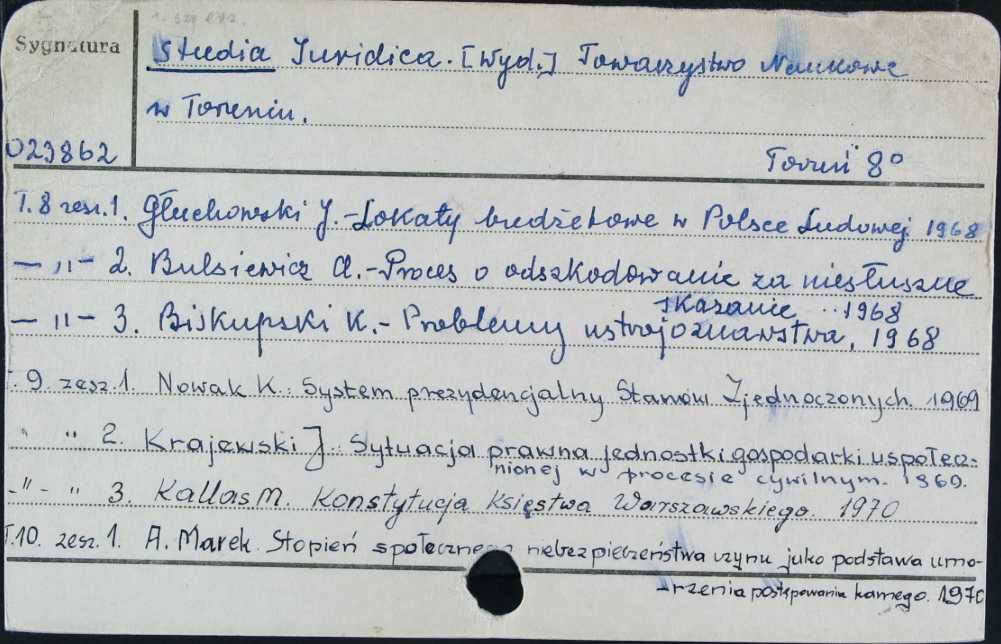 Sygnatura
Studia Iuridica. [Wyd.] Towarzystwo Naukowe
w Toruniu.
023862
Toruń 8°
T. 8 zesz. 1. Głuchowski J. - Lokaty budżetowe w Polsce Ludowej 1968
— „ — 2. Bulsiewicz A. - Proces o odszkodowanie za niesłuszne
skazanie 1968
— „ — 3. Biskupski K. - Problemy ustrojoznawstwa, 1968
T. 9. zesz. 1. Nowak K. : System prezydencjalny Stanów Zjednoczonych. 1969
" " 2. Krajewski J. : Sytuacja prawna jednostki gospodarki uspołecz-
nionej w procesie cywilnym. 1969.
-"- " 3. Kallas M. Konstytucja Księstwa Warszawskiego. 1970
T. 10. zesz. 1. A. Marek. Stopień społecznego niebezpieczeństwa czynu jako podstawa umo-
-rzenia postępowania karnego. 1970